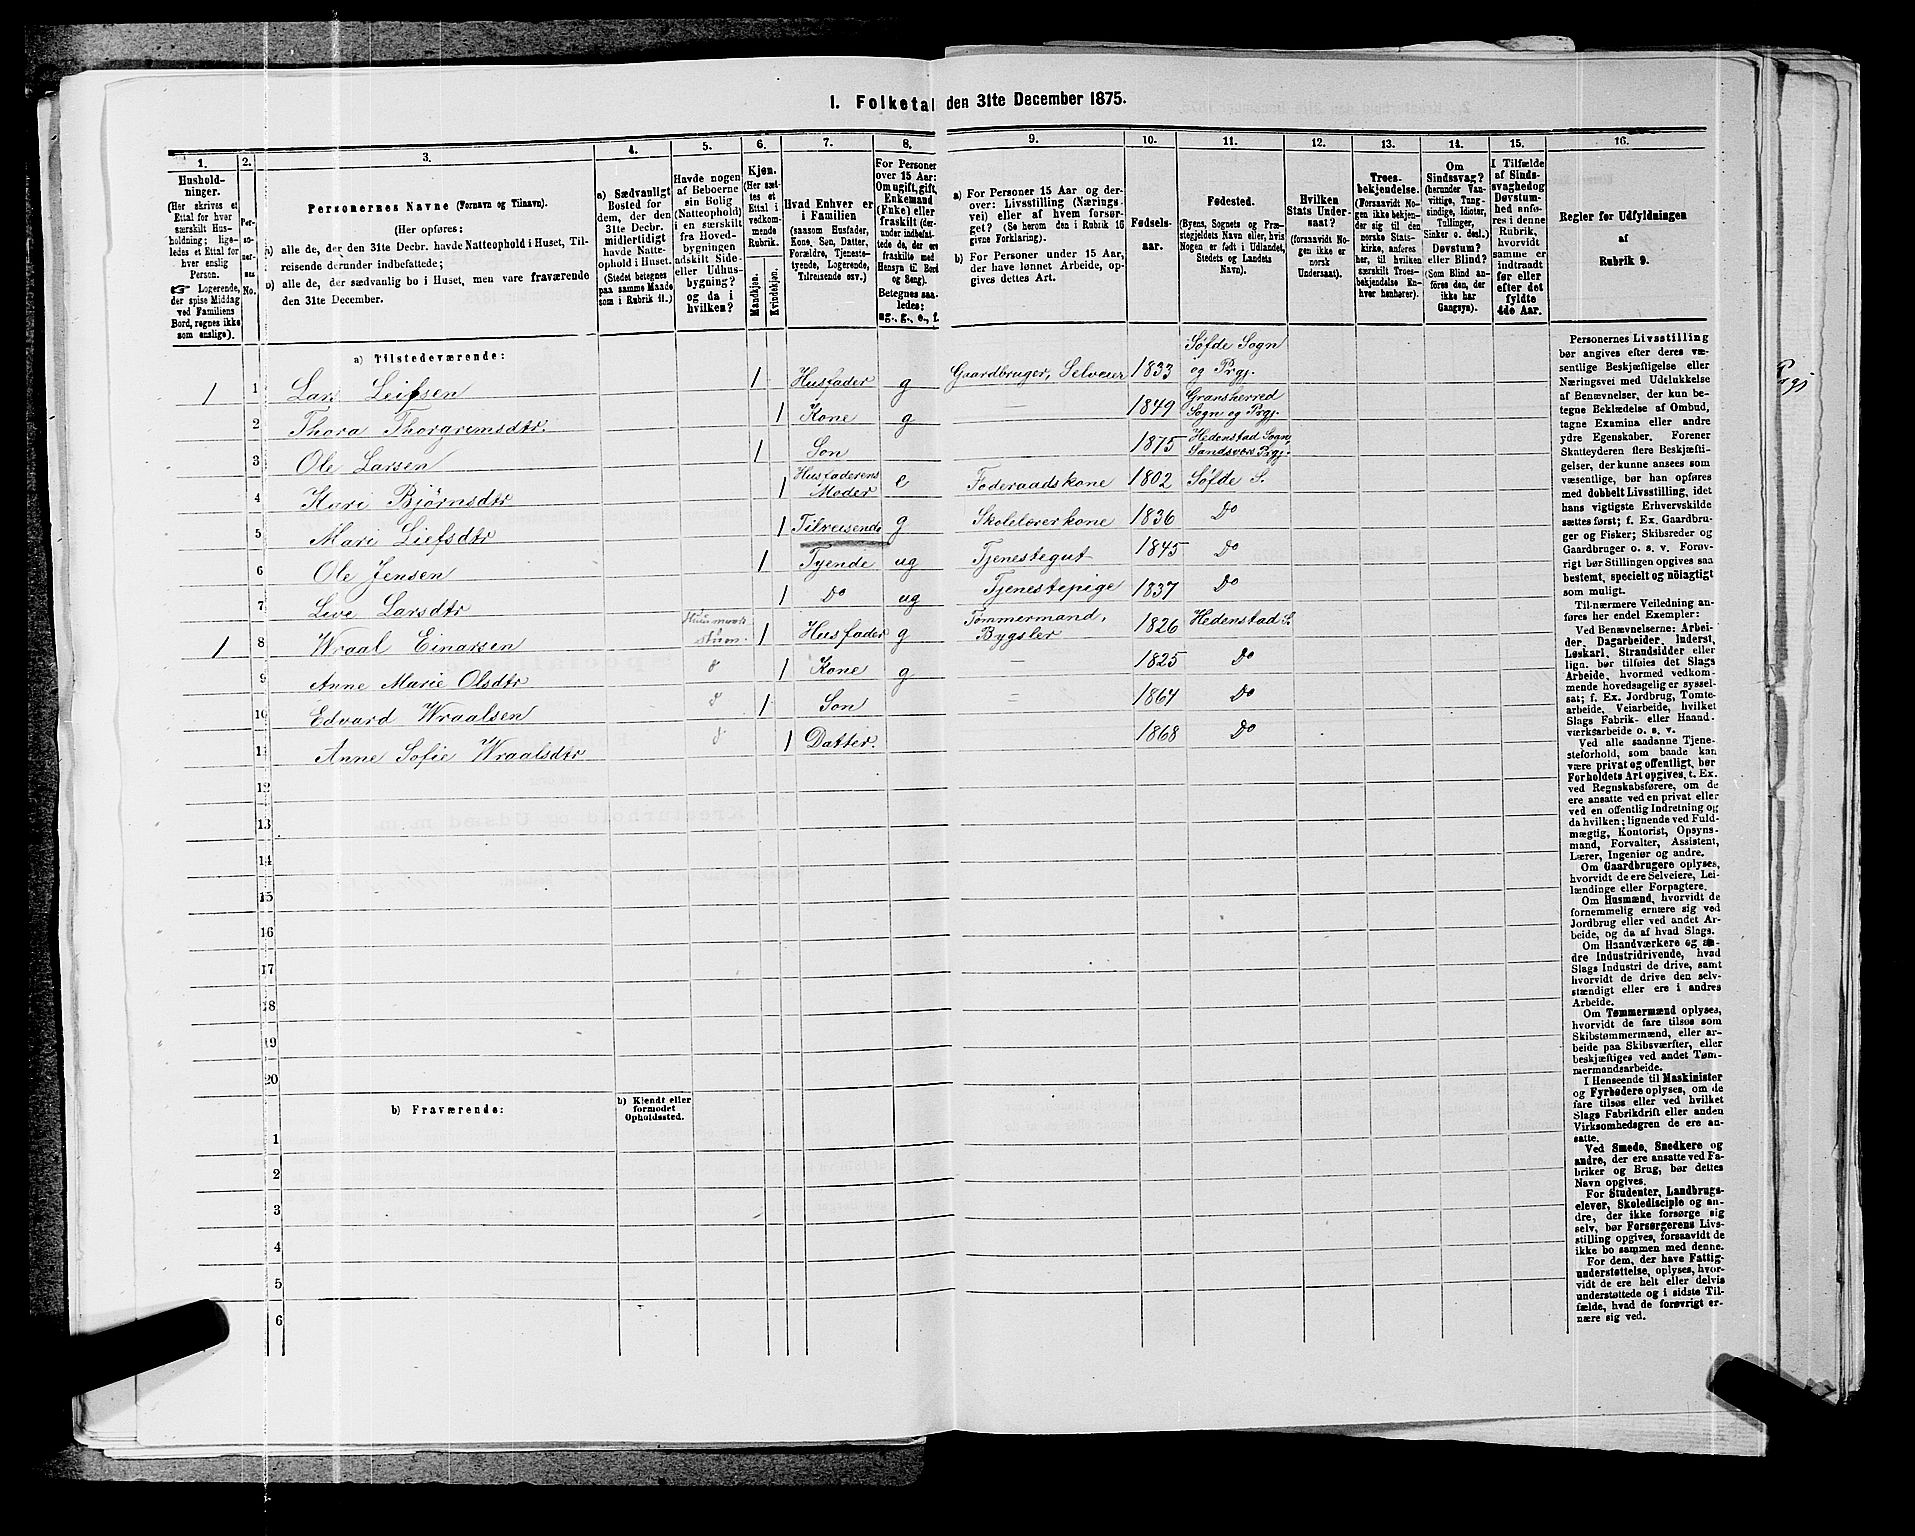 1. Folketal den 31te December 1875.
1. 2. 3. 4. 5. 6. 7. 8. 9. 10. 11. 12. 13. 14. 15. 16.
Hushold-
ninger.
(Her skrives et
Ettal for hver
særskilt Hus-
holdning; lige-
ledes et Ettal for
hver enslig
Person.
☞ Logerende,
der spise Middag
ved Familiens
Bord, regnes ikke
som enslige).
Per-
soner-
nes
No.
Personernes Navne (Fornavn og Tilnavn).
(Her opføres:
a) alle de, der den 31te Decbr. havde Natteophold i Huset, Til-
reisende derunder indbefattede;
b) alle de, der sædvanlig bo i Huset, men vare fraværende
den 31te December.
a) Sædvanligt
Bosted for
dem, der den
31te Decbr.
midlertidigt
havde Natte-
ophold i Huset.
(Stedet betegnes
paa samme Maade
som i Rubrik 11.)
Havde nogen
af Beboerne
sin Bolig
(Natteophold)
i en særskilt
fra Hoved-
bygningen
adskilt Side-
eller Udhus-
bygning?
og da i
hvilken?
Kjøn.
(Her sæt-
tes et
Ettal i
vedkom-
mende
Rubrik.
Mandkjøn.
Kvindekjøn.
Hvad Enhver er
i Familien
(saasom Husfader,
Kone, Søn, Datter,
Forældre, Tjeneste-
tyende, Logerende,
Tilreisende osv.)
For Personer
over 15 Aar:
Om ugift, gift,
Enkemand
(Enke) eller
fraskilt (der-
under indbefat-
tede de, der ere
fraskilte med
Hensyn til Bord
og Seng).
Betegnes saa-
ledes:
ug., g., e., f.
a) For Personer 15 Aar og der-
over: Livsstilling (Nærings-
vei) eller af hvem forsør-
get? (Se herom den i Rubrik 16
givne Forklaring).
b) For Personer under 15 Aar,
der have lønnet Arbeide, op-
gives dettes Art.
Fødsels-
aar.
Fødested.
(Byens, Sognets og Præ-
stegjeldets Navn eller, hvis
Nogen er født i Udlandet,
Stedets og Landets
Navn).
Hvilken
Stats Under-
saat?
(forsaavidt No-
gen ikke er
norsk
Undersaat).
Troes-
bekjendelse.
(Forsaavidt No-
gen ikke bekjen-
der sig til den
norske Stats-
kirke, anføres
her, til hvilken
særskilt Troes-
bekjendelse En-
hver henhører).
Om
Sindssvag?
(herunder Van-
vittige, Tung-
sindige, Idioter,
Tullinger,
Sinker o. desl.)
Døvstum?
eller Blind?
(Som Blind an-
føres den, der
ikke har
Gangsyn).
I Tilfælde
af Sinds-
svaghed og
Døvstum-
hed anfø-
res i denne
Rubrik,
hvorvidt
samme er
indtraadt
før eller
efter det
fyldte
4de Aar.
Regler for Udfyldningen
af
Rubrik 9.
a) Tilstedeværende:
1 1 Lars Leifsen 1 Husfader g Gaardbruger, Selveier 1833 Søfde Sogn og Prgj.
2 Thora Thorgremsdtr. 1 Kone g — 1849 Gransherred Sogn og Prgj.
3 Ole Larsen 1 Søn 1875 Hedenstad Sogn, Sandsværs Prgj.
4 Kari Bjørnsdtr 1 Husfaderens Moder e Føderaadskone 1802 Søfde S.
5 Mari Liefsdtr 1 Tilreisende g Skolelærerkone 1836 Do
6 Ole Jensen 1 Tyende ug Tjenestegut 1845 Do
7 Live Larsdtr 1 Do ug Tjenestepige 1837 Do
1 8 Wraal Einarsen 1 Husfader g Tømmermand, Bygsler 1826 Hedenstad S.
9 Anne Marie Olsdtr 1 Kone g — 1825 Do
10 Edvard Wraalsen 1 Søn 1864 Do
11 Anne Sofie Wraalsdtr 1 Datter. 1868 Do
12
13
14
15
16
17
18
19
20
b) Fraværende:
b) Kjendt eller
formodet
Opholdssted.
1
2
3
4
5
6
Personernes Livsstilling
bør angives efter deres væ-
sentlige Beskjæftigelse eller
Næringsvei med Udelukkelse
af Benævnelser, der kun be-
tegne Beklædelse af Ombud,
tagne Examina eller andre
ydre Egenskaber. Forener
Skatteyderen flere Beskjæfti-
gelser, der kunne ansees som
væsentlige, bør han opføres
med dobbelt Livsstilling, idet
hans vigtigste Erhvervskilde
sættes først; f. Ex. Gaardbru-
ger og Fisker; Skibsreder og
Gaardbruger o. s. v. Forøv-
rigt bør Stillingen opgives saa
bestemt, specielt og nøiagtigt
som muligt.
Til nærmere Veiledning an-
føres her endel Exempler:
Ved Benævnelserne: Arbei-
der, Dagarbeider, Inderst,
Løskarl, Strandsidder eller
lign. bør tilføies det Slags
Arbeide, hvormed vedkom-
mende hovedsagelig er syssel-
sat; f. Ex. Jordbrug, Tomte-
arbeide, Veiarbeide, hvilket
Slags Fabrik- eller Haand-
værksarbeide o. s. v.
Ved alle saadanne Tjene-
steforhold, som baade kan
være privat og offentligt, bør
Forholdets Art opgives, t. Ex.
ved Regnskabsførere, om de
ere ansatte ved en privat eller
ved en offentlig Indretning og
da hvilken; lignende ved Fuld-
mægtig, Kontorist, Opsyns-
mand, Forvalter, Assistent,
Lærer, Ingeniør og andre.
Om Gaardbrugere oplyses,
hvorvidt de ere Selveiere, Lei-
lændinge eller Forpagtere.
Om Husmænd, hvorvidt de
fornemmelig ernære sig ved
Jordbrug eller ved andet Ar-
beide, og da af hvad Slags.
Om Haandværkere og an-
dre Industridrivende, hvad
Slags Industri de drive, samt
hvorvidt de drive den selv-
stændigt eller ere i andres
Arbeide.
Om Tømmermænd oplyses,
hvorvidt de fare tilsøs som
Skibstømmermænd, eller ar-
beide paa Skibsværfter, eller
beskjæftiges ved andet Tøm-
mermandsarbeide.
I Henseende til Maskinister
og Fyrbødere oplyses, om de
fare tilsøs eller ved hvilket
Slags Fabrikdrift eller anden
Virksomhedsgren de ere an-
satte.
Ved Smede, Snedkere og
andre, der ere ansatte ved Fa-
briker og Brug, bør dettes
Navn opgives.
For Studenter, Landbrugs-
elever, Skoledisciple og an-
dre, der ikke forsørge sig
selv, bør Forsørgerens Livs-
stilling opgives, forsaavidt de
ikke bo sammen med denne.
For dem, der have Fattig-
understøttelse, oplyses, hvor-
vidt de ere helt eller delvis
understøttede og i sidste Til-
fælde, hvad de forøvrigt er-
nære sig ved.